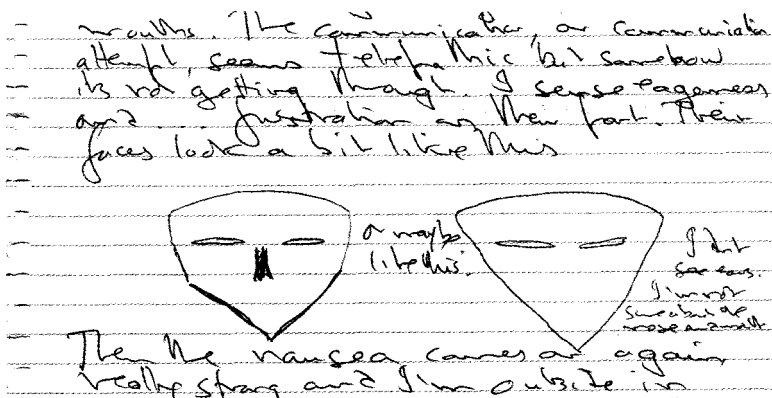 mouths. The communication, or communication
attempt, seems telepathic but somehow
its not getting through. I sense eagerness
and... frustration on their part. Their
faces look a bit like this
or maybe
like this.
I don't
see ears.
I'm not
sure about the
nose and mouth
Then the nausea comes on again
really strong and I'm outside in